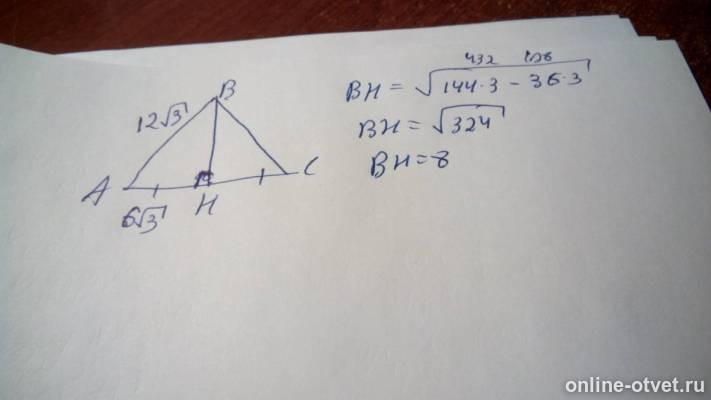 B
12√3
A
C
6√3
H
432 108
BH = √144·3 - 36·3
BH = √324
BH = 8
online-otvet.ru